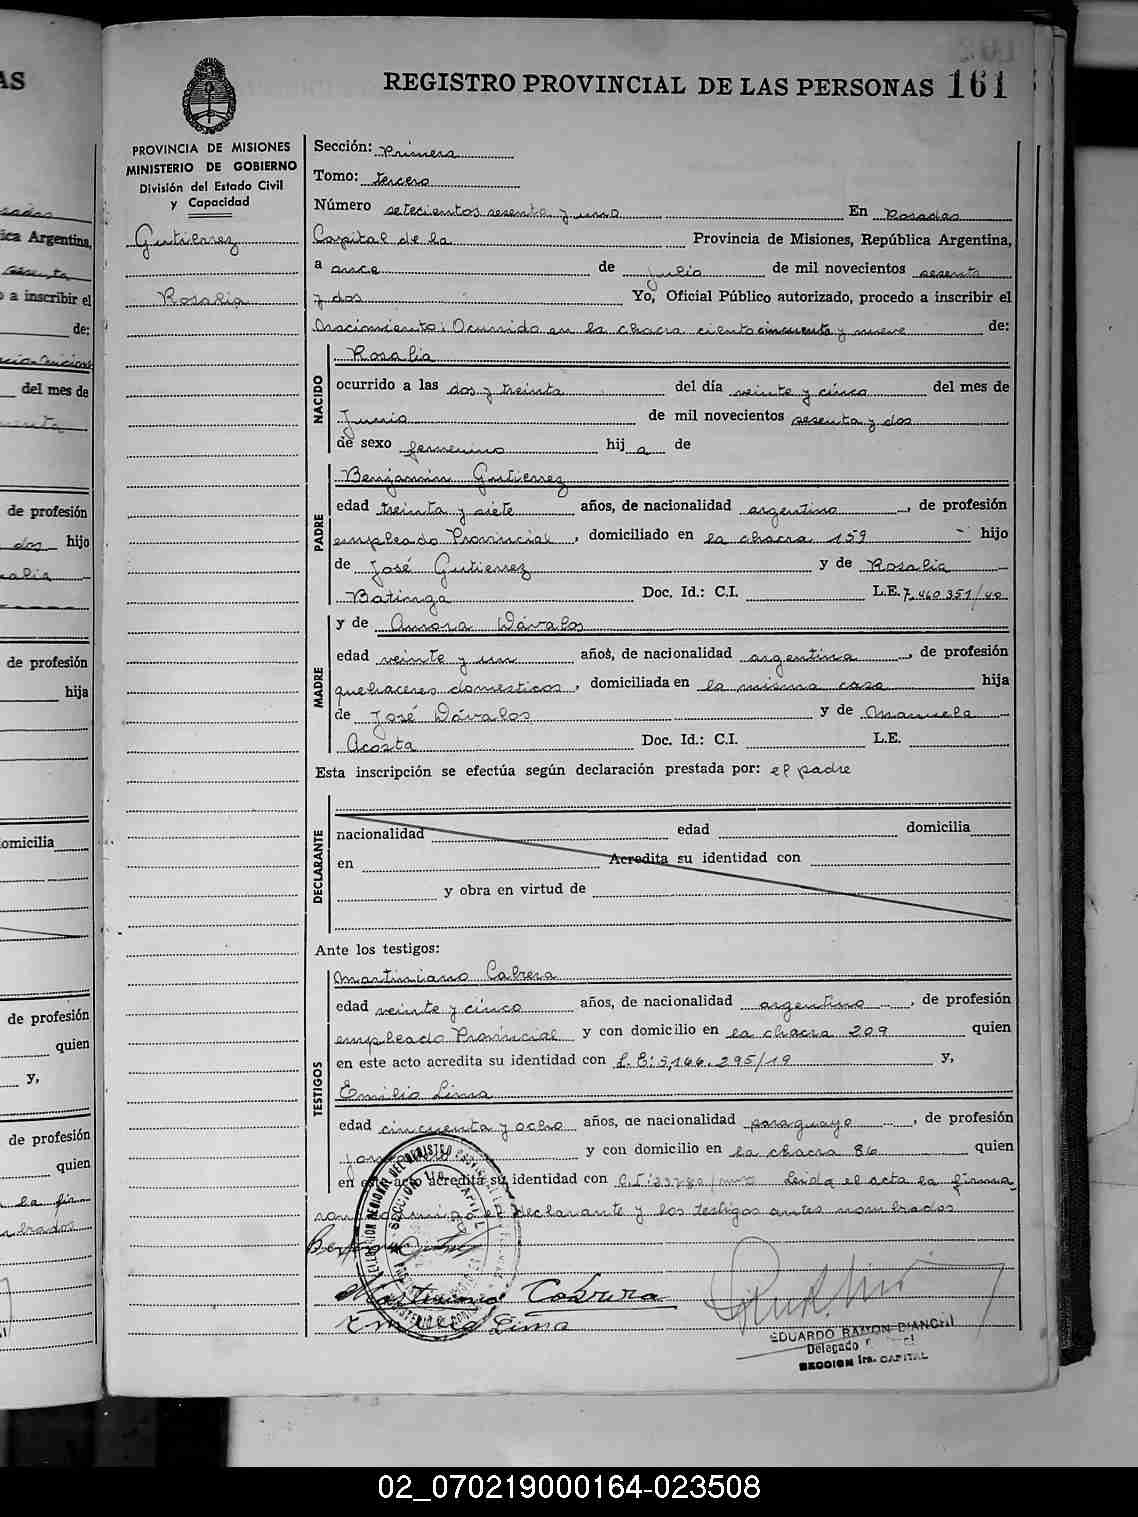 AS
REGISTRO PROVINCIAL DE LAS PERSONAS 161
PROVINCIA DE MISIONES
MINISTERIO DE GOBIERNO
División del Estado Civil
y Capacidad
Gutierrez
Rosalia
Sección: Primera
Tomo: tercero
Número setecientos sesenta y uno En Posadas
Capital de la Provincia de Misiones, República Argentina,
a once de julio de mil novecientos sesenta
y dos Yo, Oficial Público autorizado, procedo a inscribir el
nacimiento: Ocurrido en la chacra ciento cincuenta y nueve de:
NACIDO
Rosalia
ocurrido a las dos y treinta del día veinte y cinco del mes de
Junio de mil novecientos sesenta y dos
de sexo femenino hij a de
PADRE
Benjamin Gutierrez
edad treinta y siete años, de nacionalidad argentino, de profesión
empleado Provincial, domiciliado en la chacra 159 hijo
de José Gutierrez y de Rosalia
Batinga Doc. Id.: C.I. L.E. 7.460351/40
MADRE
y de Aurora Dávalos
edad veinte y un años, de nacionalidad argentina, de profesión
quehaceres domesticos, domiciliada en la misma casa hija
de José Dávalos y de Manuela
Acosta Doc. Id.: C.I. L.E.
Esta inscripción se efectúa según declaración prestada por: el padre
DECLARANTE
nacionalidad edad domicilia
en Acredita su identidad con
y obra en virtud de
Ante los testigos:
TESTIGOS
Martiniano Cabrera
edad veinte y cinco años, de nacionalidad argentino, de profesión
empleado Provincial y con domicilio en la chacra 209 quien
en este acto acredita su identidad con L.E: 5,166.295/19 y,
Emilio Lima
edad cincuenta y ocho años, de nacionalidad paraguayo, de profesión
y con domicilio en la chacra 86 quien
en este acto acredita su identidad con Leida el acta la firma
el declarante y los testigos antes nombrados
Martiniano Cabrera
Emilio Lima
EDUARDO RAMON BIANCHI
Delegado
SECCION 1ra. CAPITAL
ica Argentina,
a inscribir el
de:
del mes de
de profesión
dos hijo
de profesión
hija
omicilia
de profesión
quien
y,
de profesión
quien
02_070219000164-023508